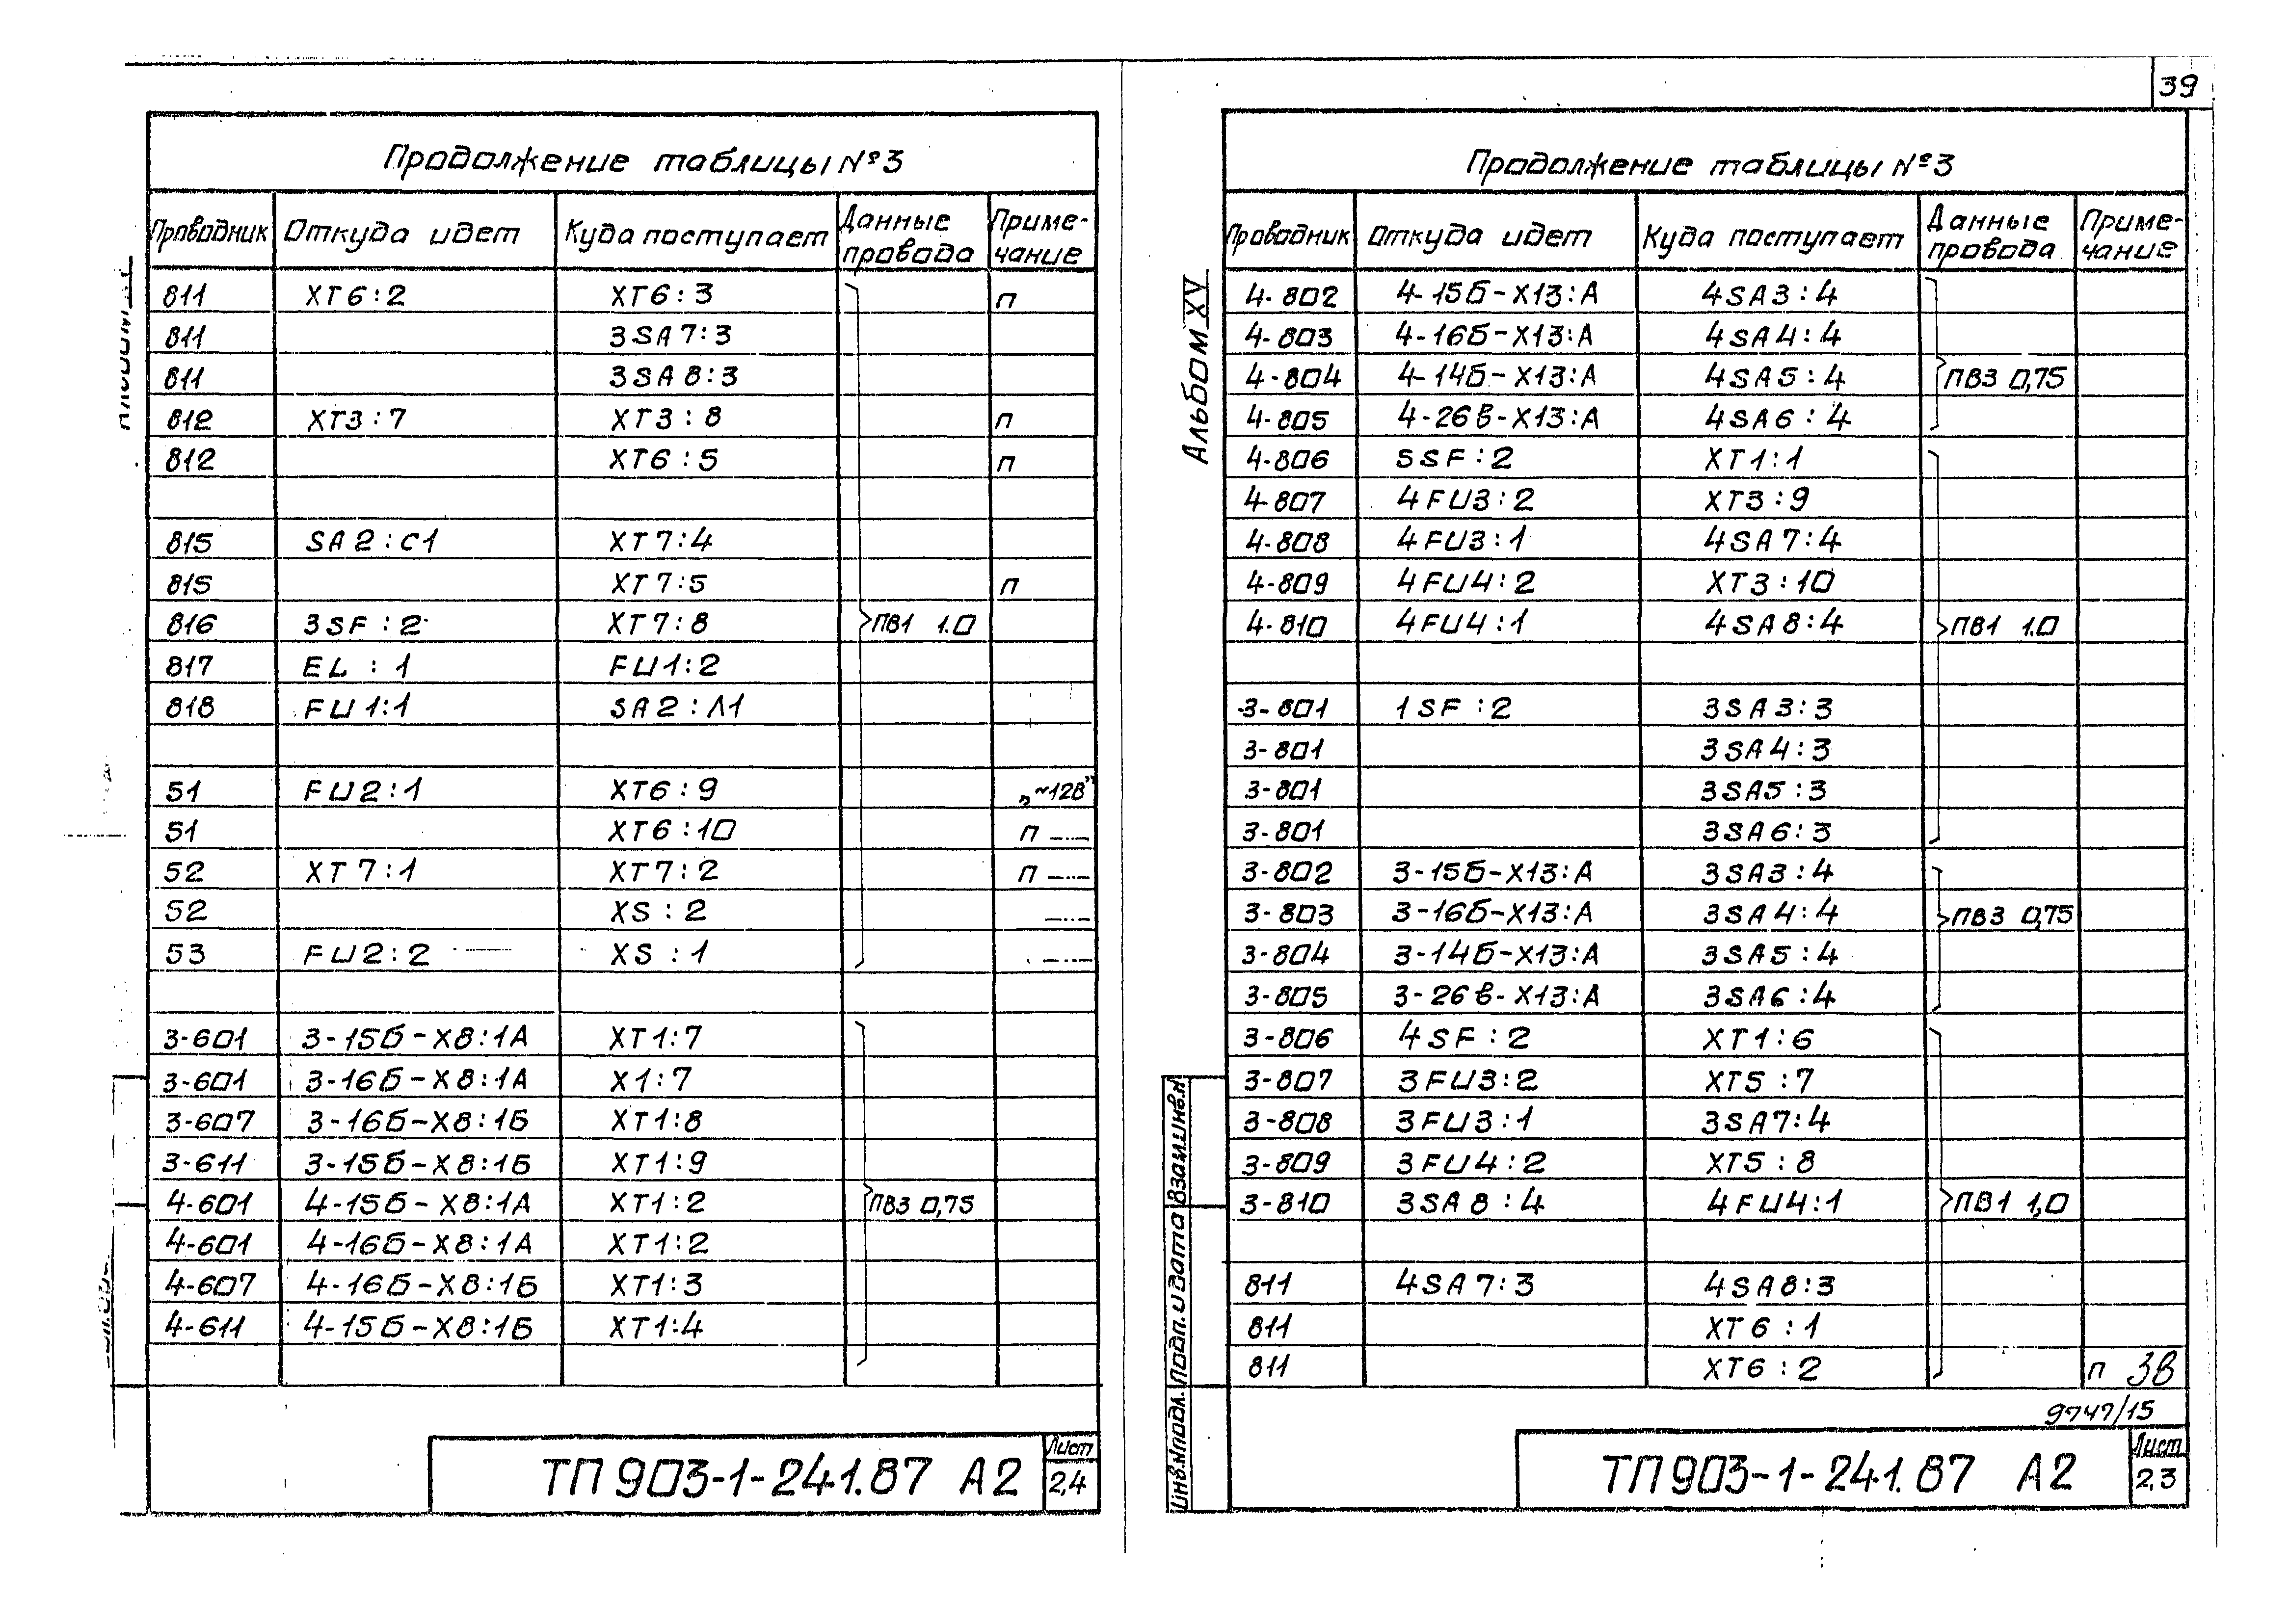 39
Продолжение таблицы №3
Проводник Откуда идет Куда поступает Данные провода Примечание
811 XT6:2 XT6:3 п
811 3SA7:3
811 3SA8:3
812 XT3:7 XT3:8 п
812 XT6:5 п
815 SA2:C1 XT7:4
815 XT7:5 п
816 3SF:2 XT7:8 ПВ1 1.0
817 EL:1 FU1:2
818 FU1:1 SA2:Л1
51 FU2:1 XT6:9 „~12В"
51 XT6:10 п —··—
52 XT7:1 XT7:2 п —··—
52 XS:2 —··—
53 FU2:2 XS:1 —··—
3-601 3-15б-X8:1А XT1:7
3-601 3-16б-X8:1А X1:7
3-607 3-16б-X8:1Б XT1:8
3-611 3-15б-X8:1Б XT1:9
4-601 4-15б-X8:1А XT1:2 ПВ3 0,75
4-601 4-16б-X8:1А XT1:2
4-607 4-16б-X8:1Б XT1:3
4-611 4-15б-X8:1Б XT1:4
ТП 903-1-241.87 А2
Лист
2,4
Альбом XV
Продолжение таблицы №3
Проводник Откуда идет Куда поступает Данные провода Примечание
4-802 4-15б-X13:А 4SA3:4
4-803 4-16б-X13:А 4SA4:4
4-804 4-14б-X13:А 4SA5:4 ПВ3 0,75
4-805 4-26в-X13:А 4SA6:4
4-806 5SF:2 XT1:1
4-807 4FU3:2 XT3:9
4-808 4FU3:1 4SA7:4
4-809 4FU4:2 XT3:10
4-810 4FU4:1 4SA8:4 ПВ1 1.0
3-801 1SF:2 3SA3:3
3-801 3SA4:3
3-801 3SA5:3
3-801 3SA6:3
3-802 3-15б-X13:А 3SA3:4
3-803 3-16б-X13:А 3SA4:4 ПВ3 0,75
3-804 3-14б-X13:А 3SA5:4
3-805 3-26в-X13:А 3SA6:4
3-806 4SF:2 XT1:6
3-807 3FU3:2 XT5:7
3-808 3FU3:1 3SA7:4
3-809 3FU4:2 XT5:8
3-810 3SA8:4 4FU4:1 ПВ1 1,0
811 4SA7:3 4SA8:3
811 XT6:1
811 XT6:2 п 38
9747/15
Инв.№подл. Подп. и дата Взам.инв.№
ТП 903-1-241.87 А2
Лист
2,3